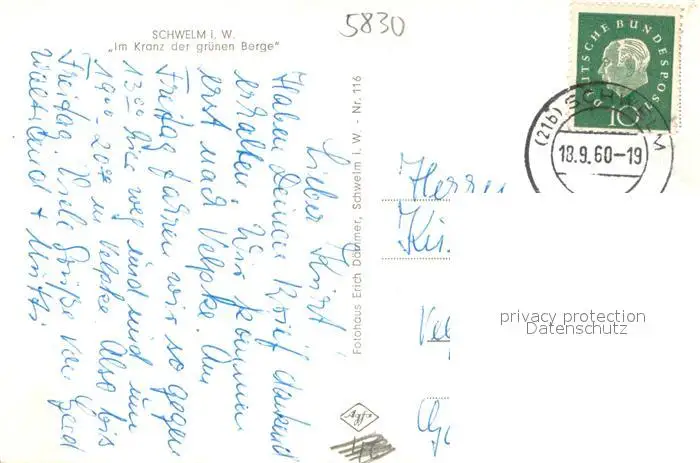 SCHWELM i. W.
„Im Kranz der grünen Berge"
5830
DEUTSCHE BUNDESPOST
10
(21b) SCHWELM
18.9.60-19
Lieber Kurt!
Haben Deinen Brief dankend
erhalten. Wir kommen
erst nach Velpke. Am
Freitag fahren wir so gegen
13⁰⁰ hier weg und sind um
19⁰⁰-20⁰⁰ in Velpke. Also bis
Freitag. Viele Grüße von Gerd
Waltraud + Mutti
Fotohaus Erich Dämmer, Schwelm i. W. - Nr. 116
Herrn
Agfa
privacy protection
Datenschutz